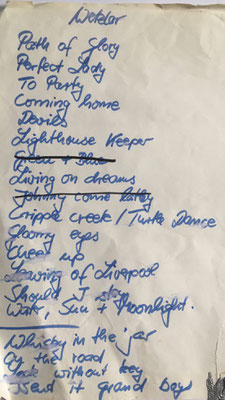 Path of Glory
Perfect Lady
To Party
Coming home
Devils
Lighthouse Keeper
Green + Blue
Living on dreams
Johnny come latley
Cripple creek / Turtle Dance
Gloomy eyes
Cheer up
Leaving of Liverpool
Should I stay
Water, Sun + Moonlight.
Whisky in the jar
By the road
Lock without key
Isend it grand boys